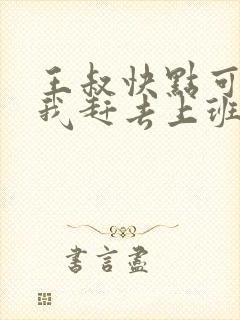 王叔快點可
我赶去上班
書言盡